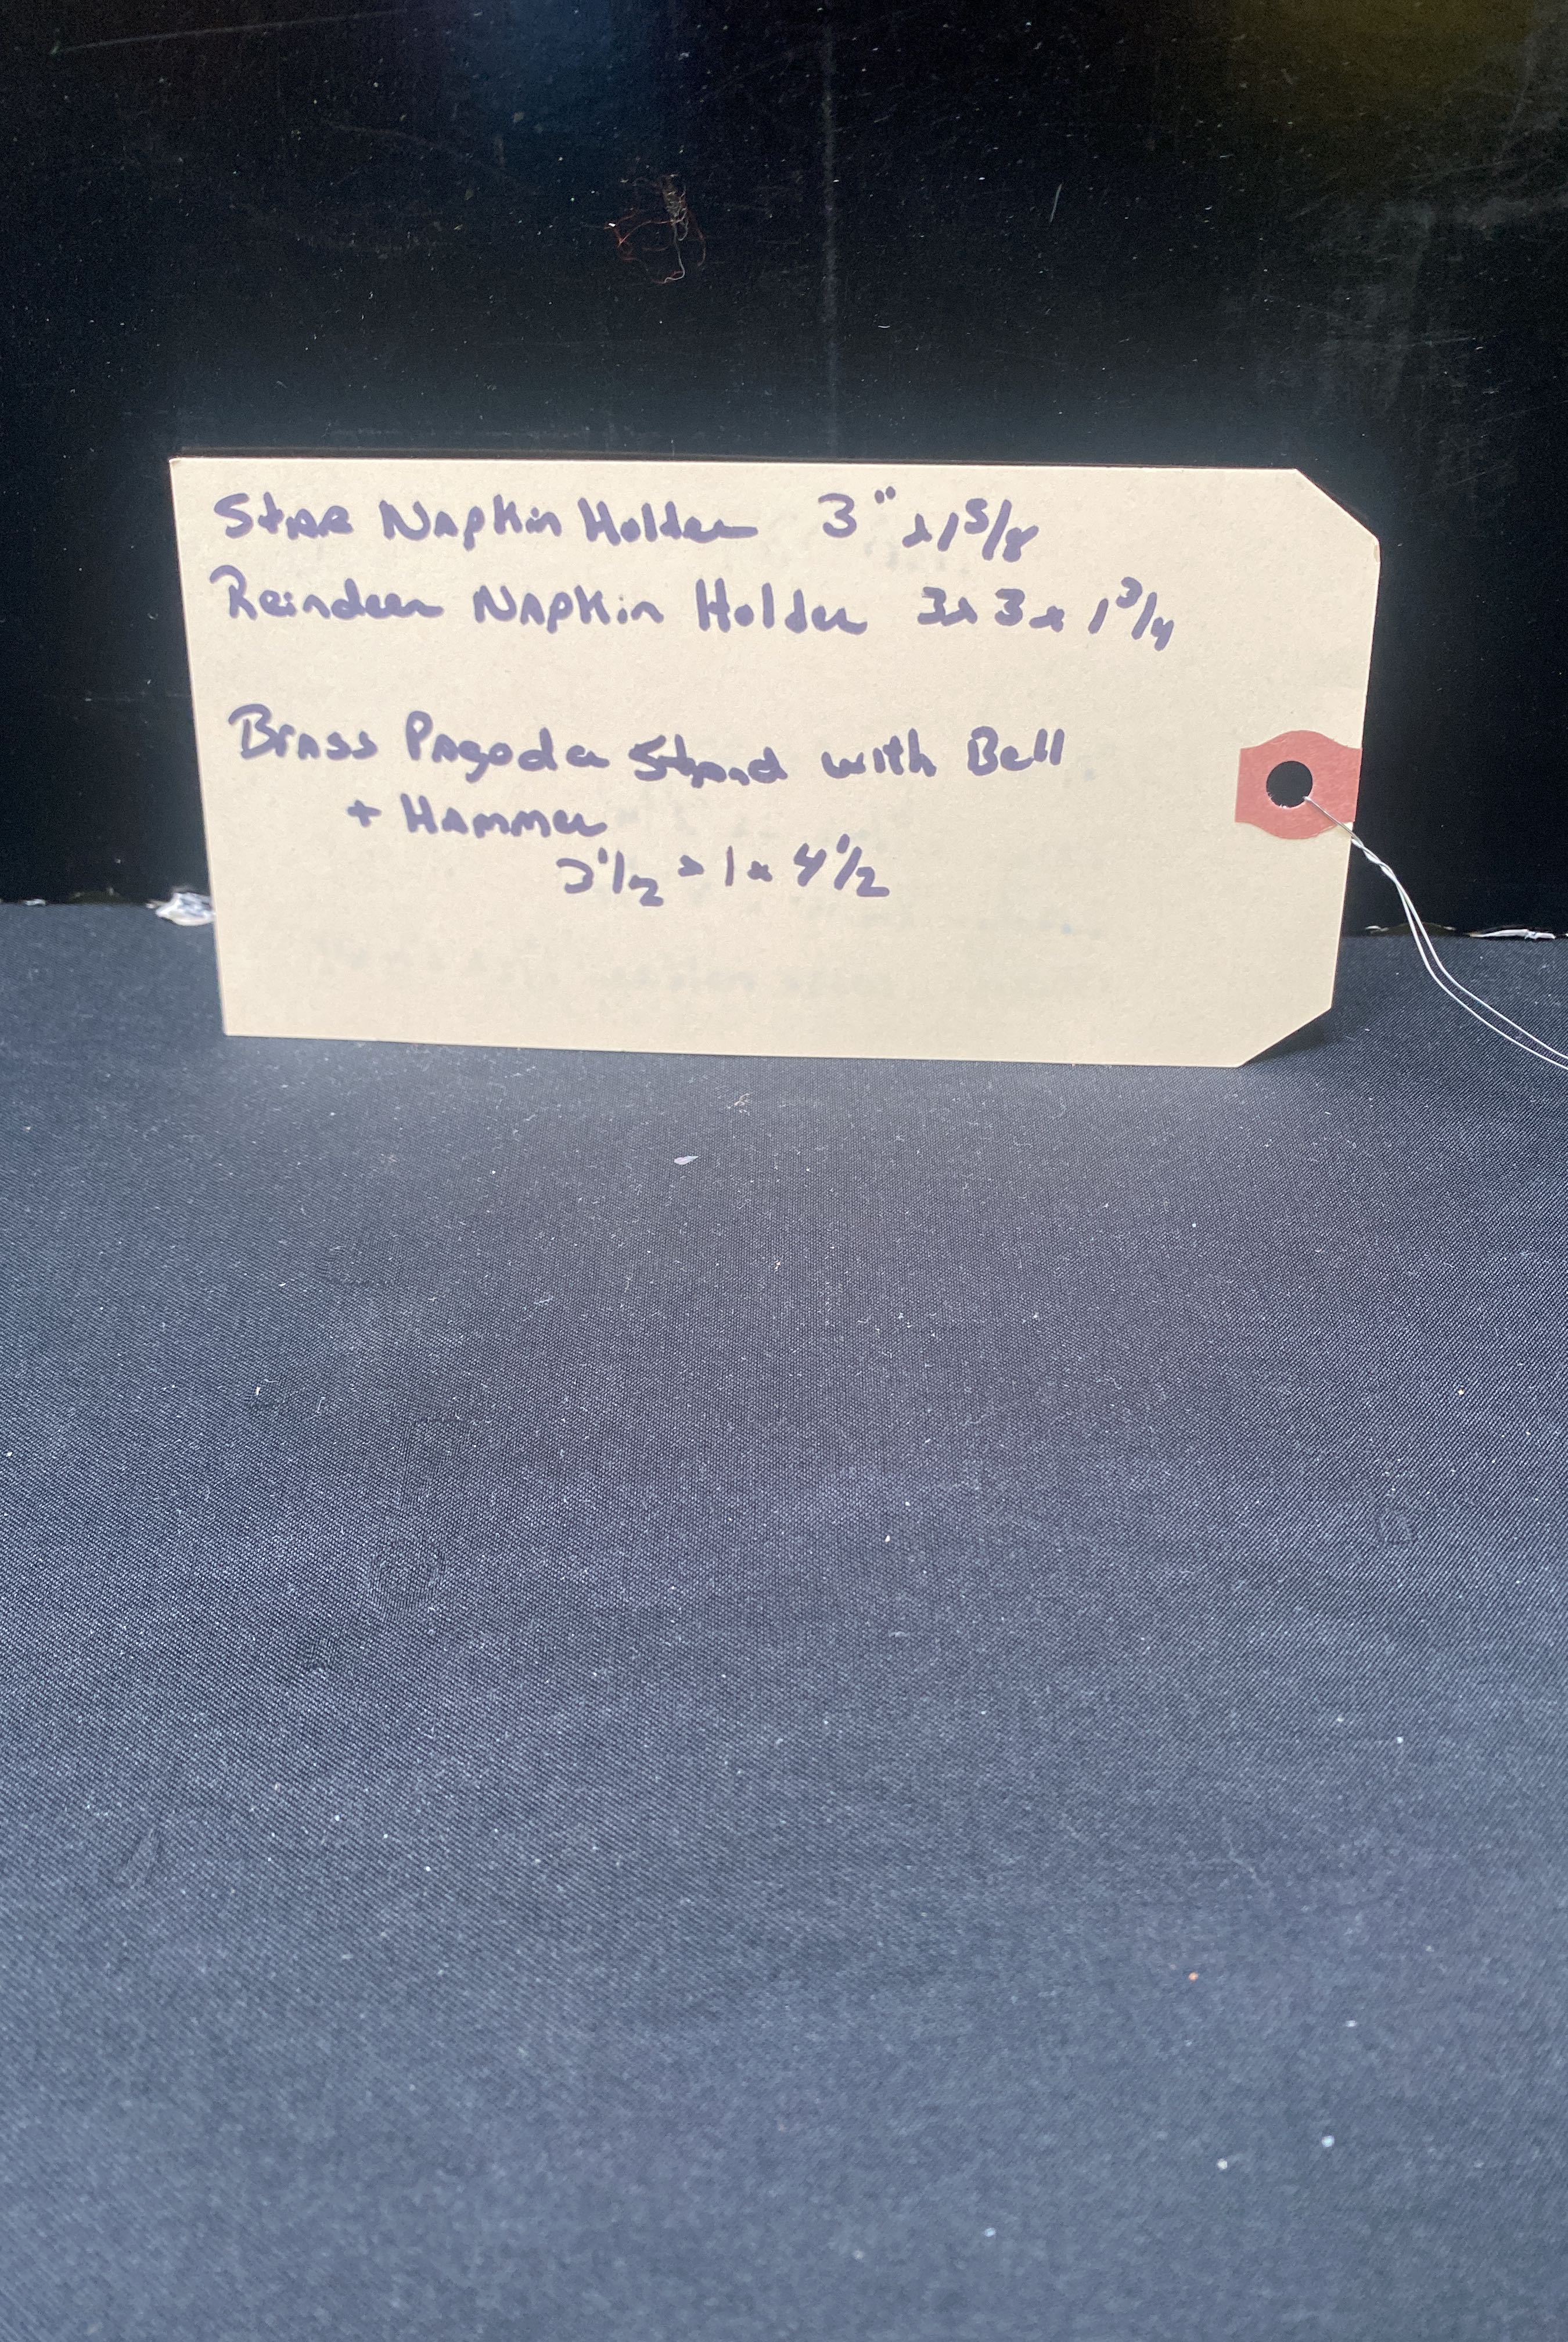 Star Napkin Holder 3" x 1 5/8
Reindeer Napkin Holder 3x3x 1 3/4
Brass Pagoda Stand with Bell
+ Hammer
3 1/2 x 1 x 4 1/2